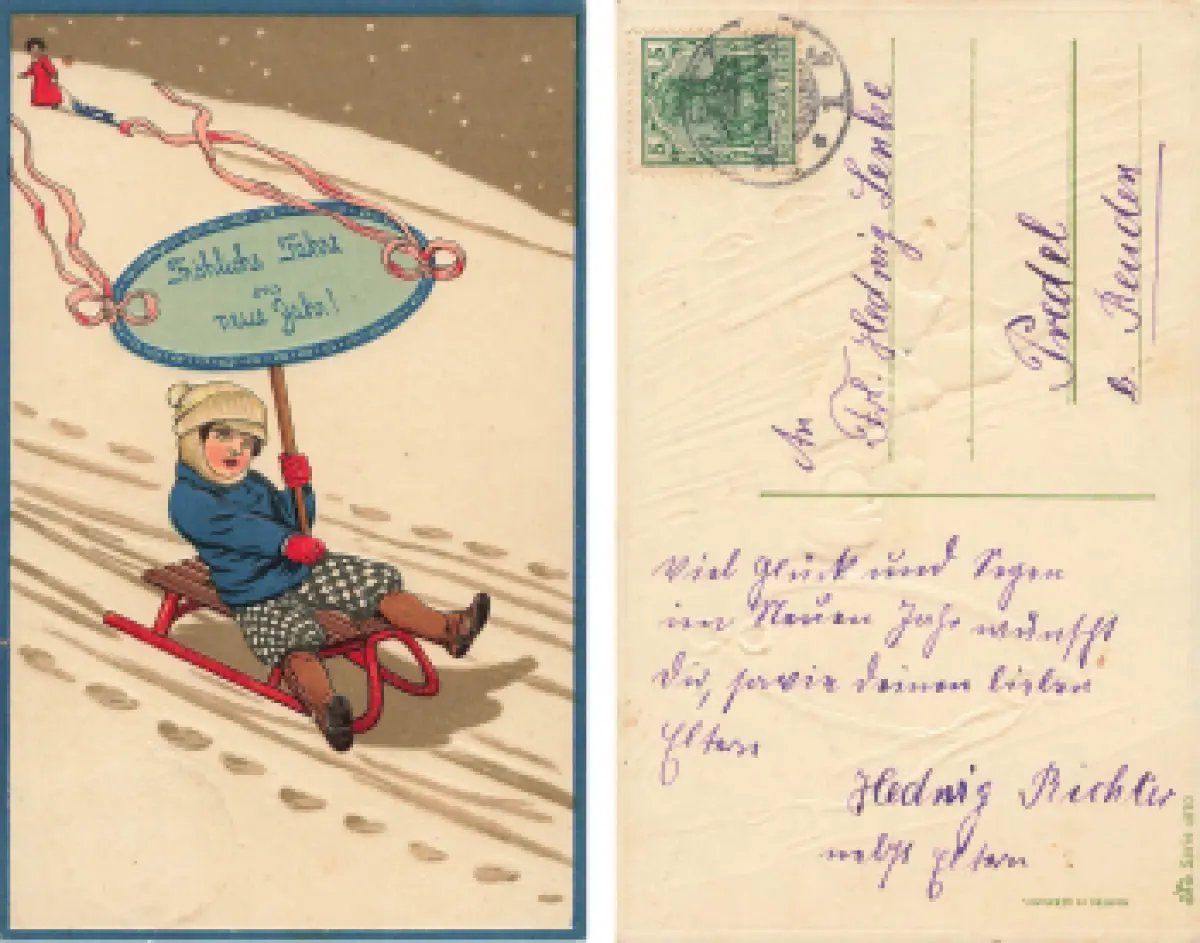 Fröhliche Fahrt
ins
neue Jahr!
5 5
5 5
An
Frl. Hedwig Lenke
Predel
b. Reuden
Viel Glück und Segen
im Neuen Jahr wünscht
Dir, sowie deinen lieben
Eltern
Hedwig Richter
nebst Eltern
Serie